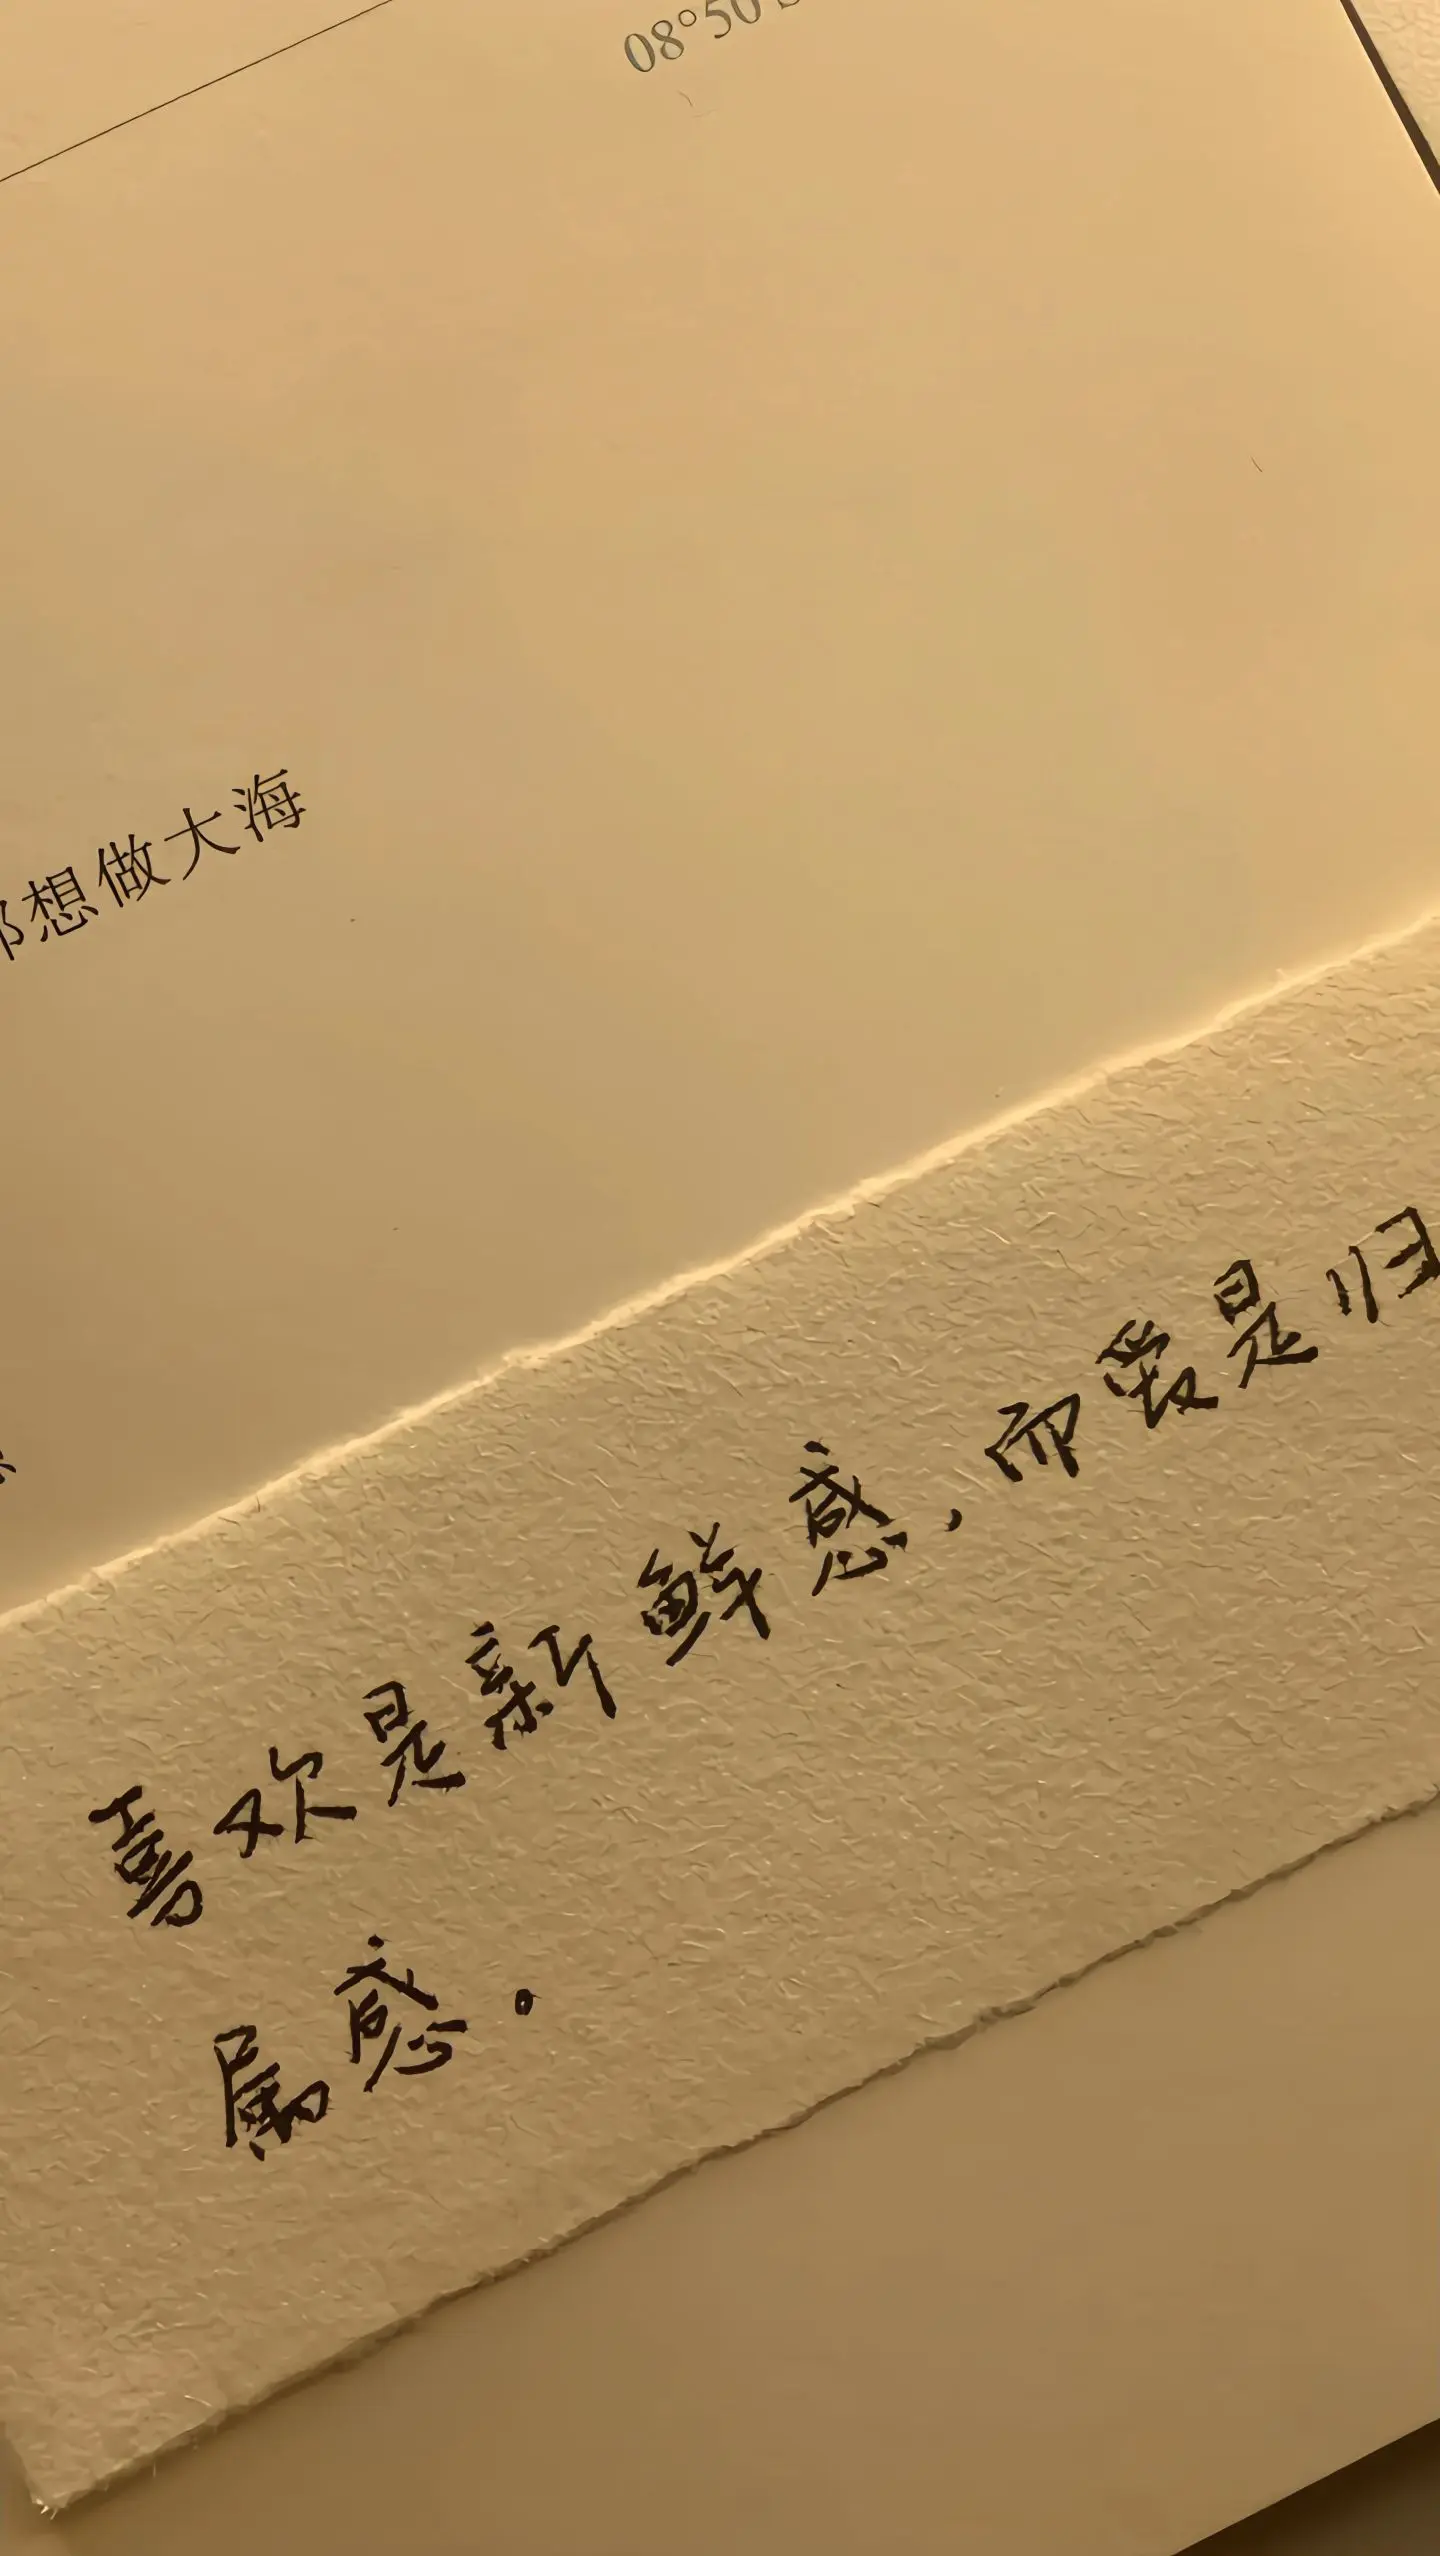 08°50
都想做大海
喜欢是新鲜感，而爱是归
属感。